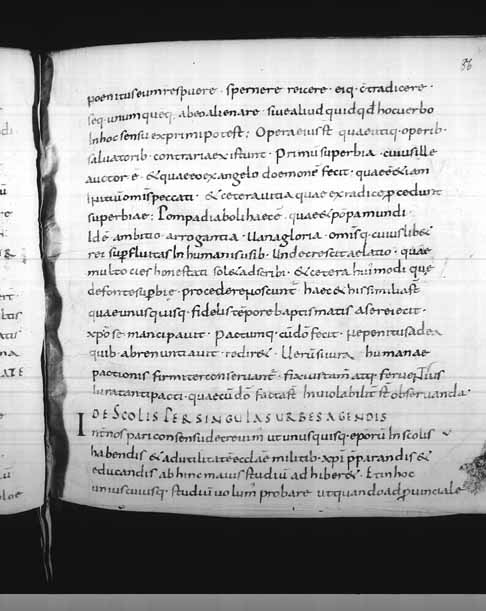 86
poenitus eum respuere · spernere reicere · eiq· c̄tradicere ·
seq· unumqueq· abeo alienare · siue aliud quid qđ hoc uerbo
In hoc sensu exprimi potest; Opera eius st̄ quae utiq· operib·
saluatorib· contraria existunt · Primū superbia · cuius ille
auctor ē · & quae eo ex angelo doemonē fecit · quae ē & iam
initiū om̄is peccati · & cetera uitia quae ex radice procedunt
superbiae; Pompa diaboli haec ē · quae & pōpa mundi ·
Id ē ambitio · arrogantia · Uana gloria · om̄isq· cuiuslib&
rei suꝑfluitas In humanis usib· Unde crescit aelatio · quae
multocies honestati sol& adscribi · & cetera hui'modi quę
de fonte suꝑbię · procedere noscunt̄ · haec & his similia st̄
quae unusquisq· fidelis tēpore baptismatis a se reiecit ·
xp̄o se mancipauit · Pactumq· cū dō fecit · ne penitus ad ea
quib· abrenuntiauit · redir& · Uerū si iura humanae
pactionis firmiter conseruant̄ · fixius tam̄ atq· feruentius
Iura tanti pacti · quae cū dō facta st̄ Inuiolabilit̄ st̄ obseruanda ·
DE SCOLIS PER SINGULAS URBES AGENDIS
Int̄ nos pari consensu decreuim' ut unusquisq· ep̄orū In scolis
habendis & ad utilitatē eccl̄ae militib· xp̄i p̄parandis &
educandis ab hinc maius studiū adhiber& · Et In hoc
uniuscuiusq· studiū uolum' probare ut quando ad ꝓuinciale